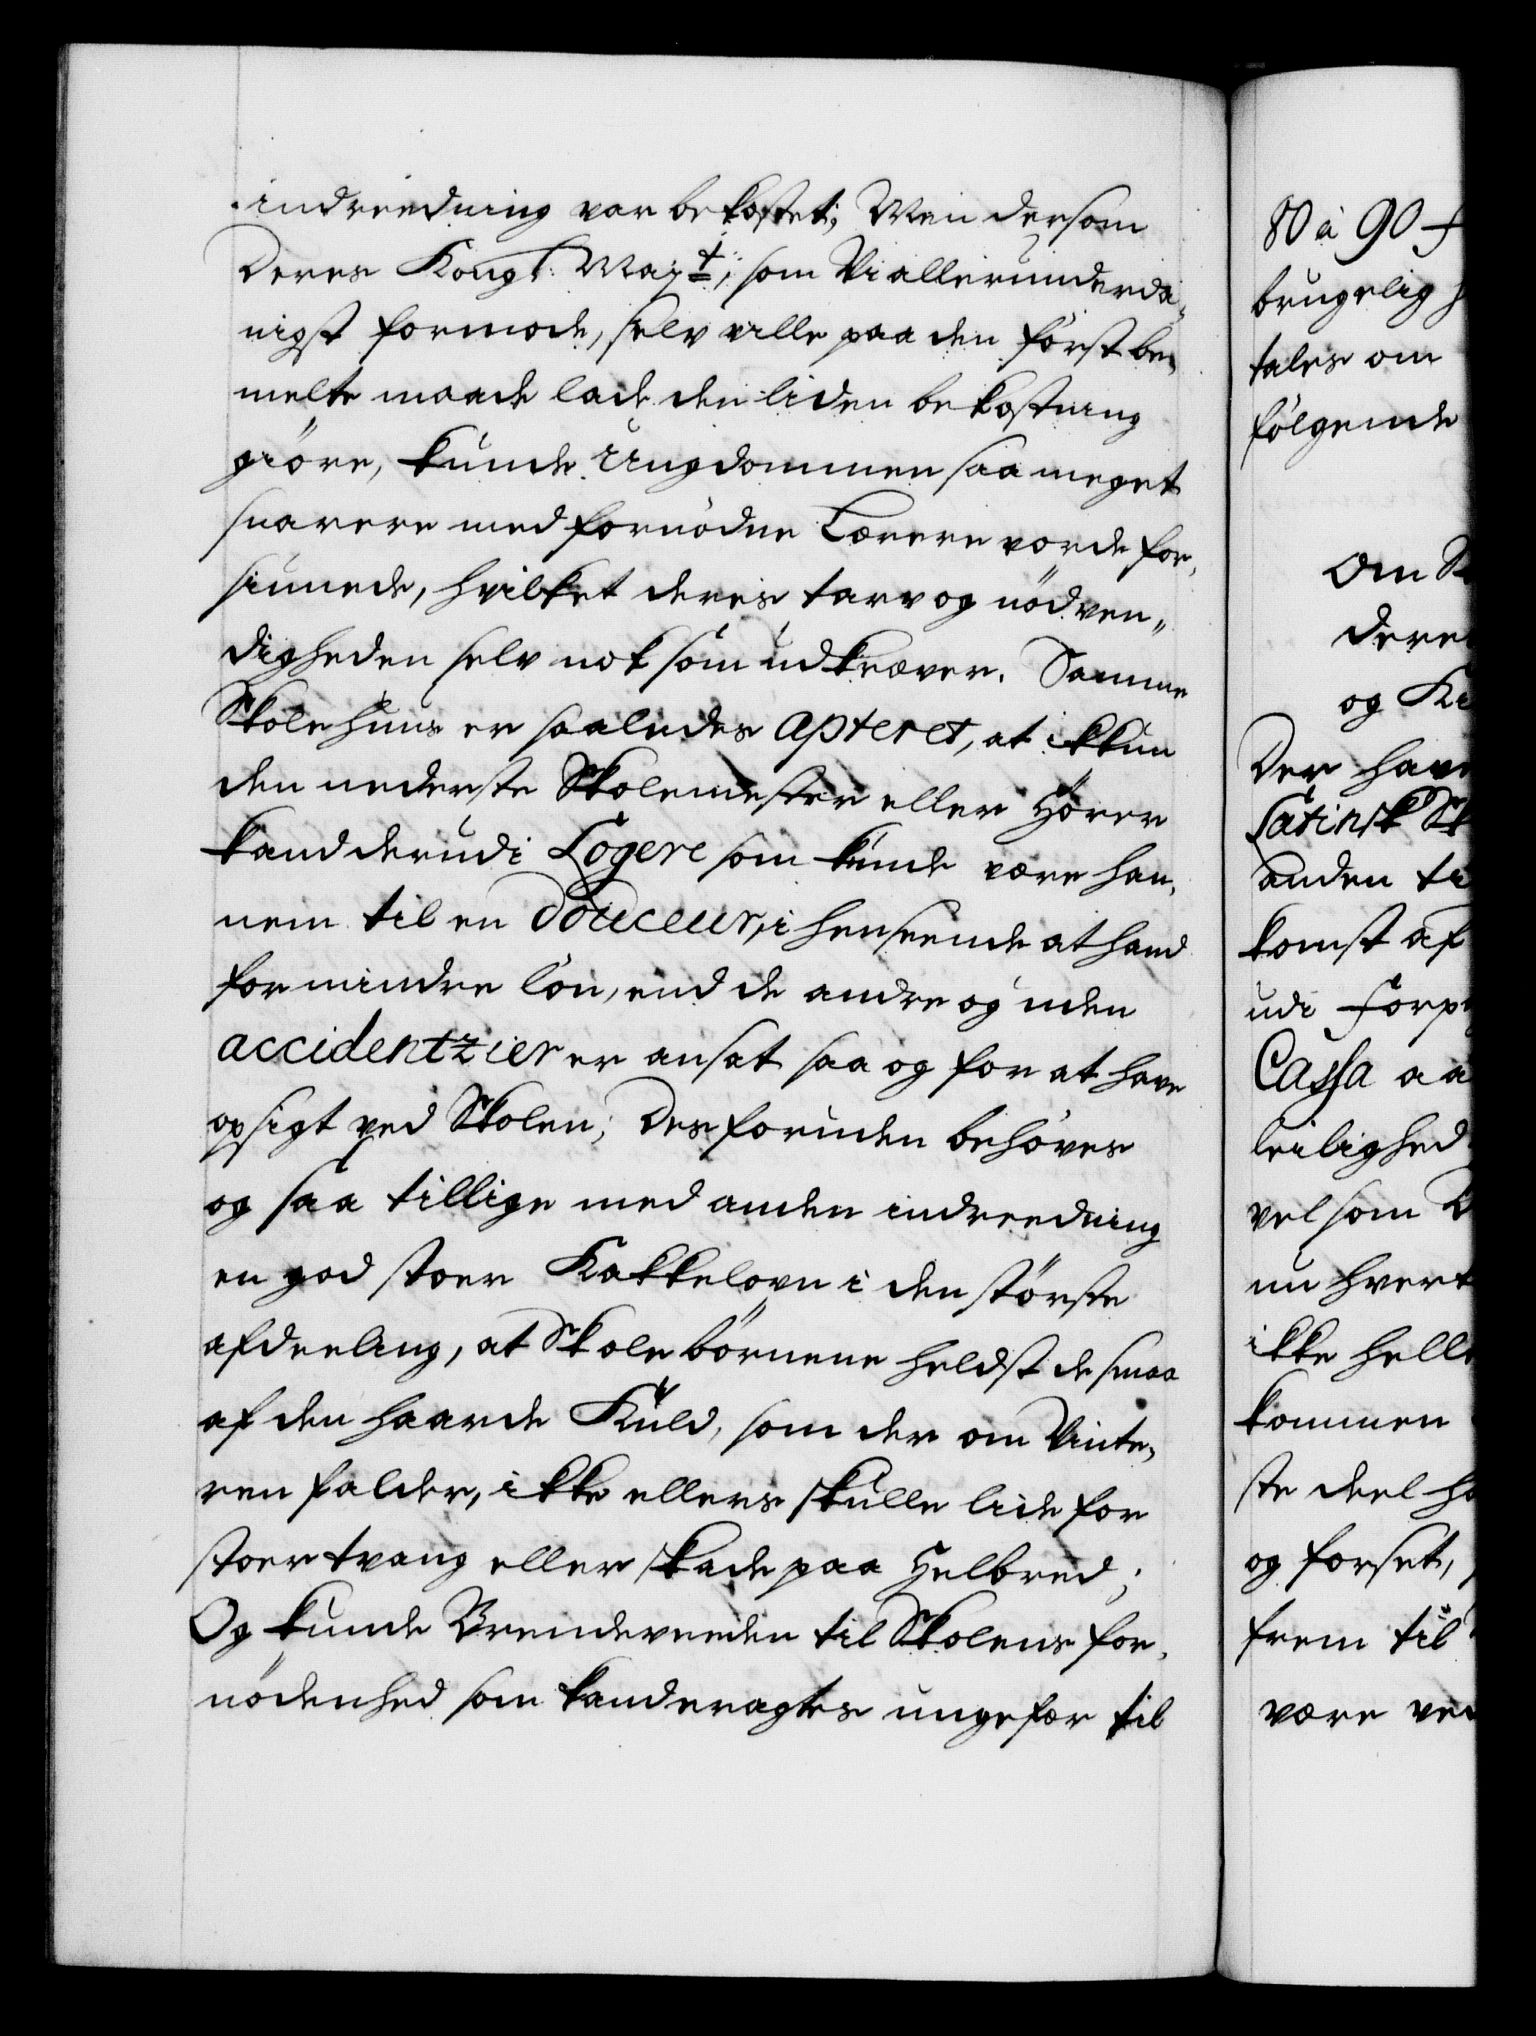 indreedning var bekostet; Men dersom
Deres Kongl: Maj:t, som Vi allerunderdä„
nigst formode, selv ville paa den först be„
melte maade lade den liden bekostning
giöre, kunde Ungdommen saa meget
snarere med fornödne Lærere vorde for„
siunede, hvilket deres tarv og nödven„
digheden selv nok som udkræver. Samme
Skolehuus er saaledes apteret, at ikkun
den nederste Skolemester eller Hörer
kand derudi Logere som kunde være han„
nem til en douceur, i henseende at hand
for mindre lön, end de andre og uden
accidentzier er ansat saa og for at have
opsigt ved Skolen; Desforuden behöves
og saa tillige med anden indreedning
en god stoer Kakkelovn i den störste
afdeeling, at Skolebörnene heldst de smaa
af den haarde Kuld, som der om Vinte„
ren falder, ikke ellers skulle lide for
stoer tvang eller skade paa Helbred;
Og kunde Brendeveeden til Skolens for„
nödenhed som kand eragtes ungefær til
80 à 90 f
brugelig h
tales om
fölgende
Om S
dere
og Ki
Der have
Latinsk Sk
anden ti
komst af
udi forp
Cassa aa
leilighed
vel som D
nu hvert
ikke helle
kommen
ste deel ha
og forset,
frem til
være ved